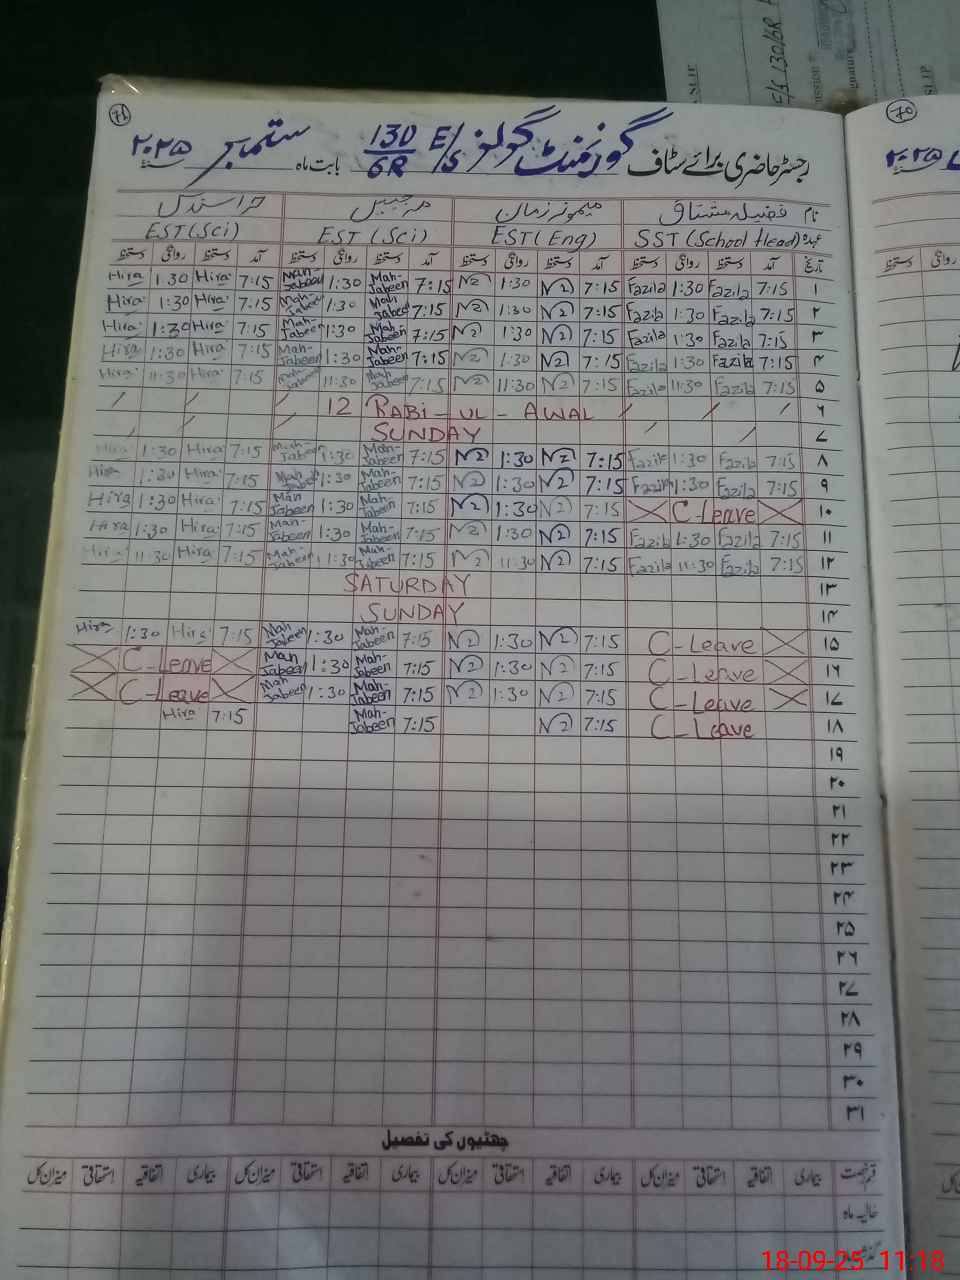 71
رجسٹر حاضری برائے سٹاف گورنمنٹ گرلز E/S 130/6R بابت ماہ ستمبر ۲۰۲۵
نام فضیلہ مشتاق میمونہ زمان مہ جبیں
عہدہ SST (School Head) EST (Eng) EST (Sci) EST (Sci)
تاریخ آمد دستخط روانگی دستخط آمد دستخط روانگی دستخط آمد دستخط روانگی دستخط آمد دستخط روانگی دستخط
۱ 7:15 Fazila 1:30 Fazila 7:15 1:30 7:15 Mah-Jabeen 1:30 Mah-Jabeen 7:15 Hira 1:30 Hira
۲ 7:15 Fazila 1:30 Fazila 7:15 1:30 7:15 Mah Jabeen 1:30 Mah-Jabeen 7:15 Hira 1:30 Hira
۳ 7:15 Fazila 1:30 Fazila 7:15 1:30 7:15 Mah Jabeen 1:30 Mah-Jabeen 7:15 Hira 1:30 Hira
۴ 7:15 Fazila 1:30 Fazila 7:15 1:30 7:15 Mah-Jabeen 1:30 Mah-Jabeen 7:15 Hira 1:30 Hira
۵ 7:15 Fazila 11:30 Fazila 7:15 11:30 7:15 Mah Jabeen 11:30 Mah-Jabeen 7:15 Hira 11:30 Hira
۶ 12 RABI-UL-AWAL
۷ SUNDAY
۸ 7:15 Fazila 1:30 Fazila 7:15 1:30 7:15 Mah-Jabeen 1:30 Mah-Jabeen 7:15 Hira 1:30 Hira
۹ 7:15 Fazila 1:30 Fazila 7:15 1:30 7:15 Mah-Jabeen 1:30 Mah-Jabeen 7:15 Hira 1:30 Hira
۱۰ C-Leave 7:15 1:30 7:15 Mah-Jabeen 1:30 Mah Jabeen 7:15 Hira 1:30 Hira
۱۱ 7:15 Fazila 1:30 Fazila 7:15 1:30 7:15 Mah-Jabeen 1:30 Mah-Jabeen 7:15 Hira 1:30 Hira
۱۲ 7:15 Fazila 11:30 Fazila 7:15 11:30 7:15 Mah-Jabeen 11:30 Mah-Jabeen 7:15 Hira 11:30 Hira
۱۳ SATURDAY
۱۴ SUNDAY
۱۵ C-Leave 7:15 1:30 7:15 Mah-Jabeen 1:30 Mah Jabeen 7:15 Hira 1:30 Hira
۱۶ C-Leave 7:15 1:30 7:15 Mah-Jabeen 1:30 Mah Jabeen C-Leave
۱۷ C-Leave 7:15 1:30 7:15 Mah-Jabeen 1:30 Mah Jabeen C-Leave
۱۸ C-Leave 7:15 7:15 Mah-Jabeen 7:15 Hira
۱۹
۲۰
۲۱
۲۲
۲۳
۲۴
۲۵
۲۶
۲۷
۲۸
۲۹
۳۰
۳۱
چھٹیوں کی تفصیل
قسم رخصت بیماری اتفاقیہ استحقاقی میزان کل بیماری اتفاقیہ استحقاقی میزان کل بیماری اتفاقیہ استحقاقی میزان کل بیماری اتفاقیہ استحقاقی میزان کل
حالیہ ماہ
70
۲۰۲۵
روانگی دستخط
E/S 130/6R
18-09-25 11:18